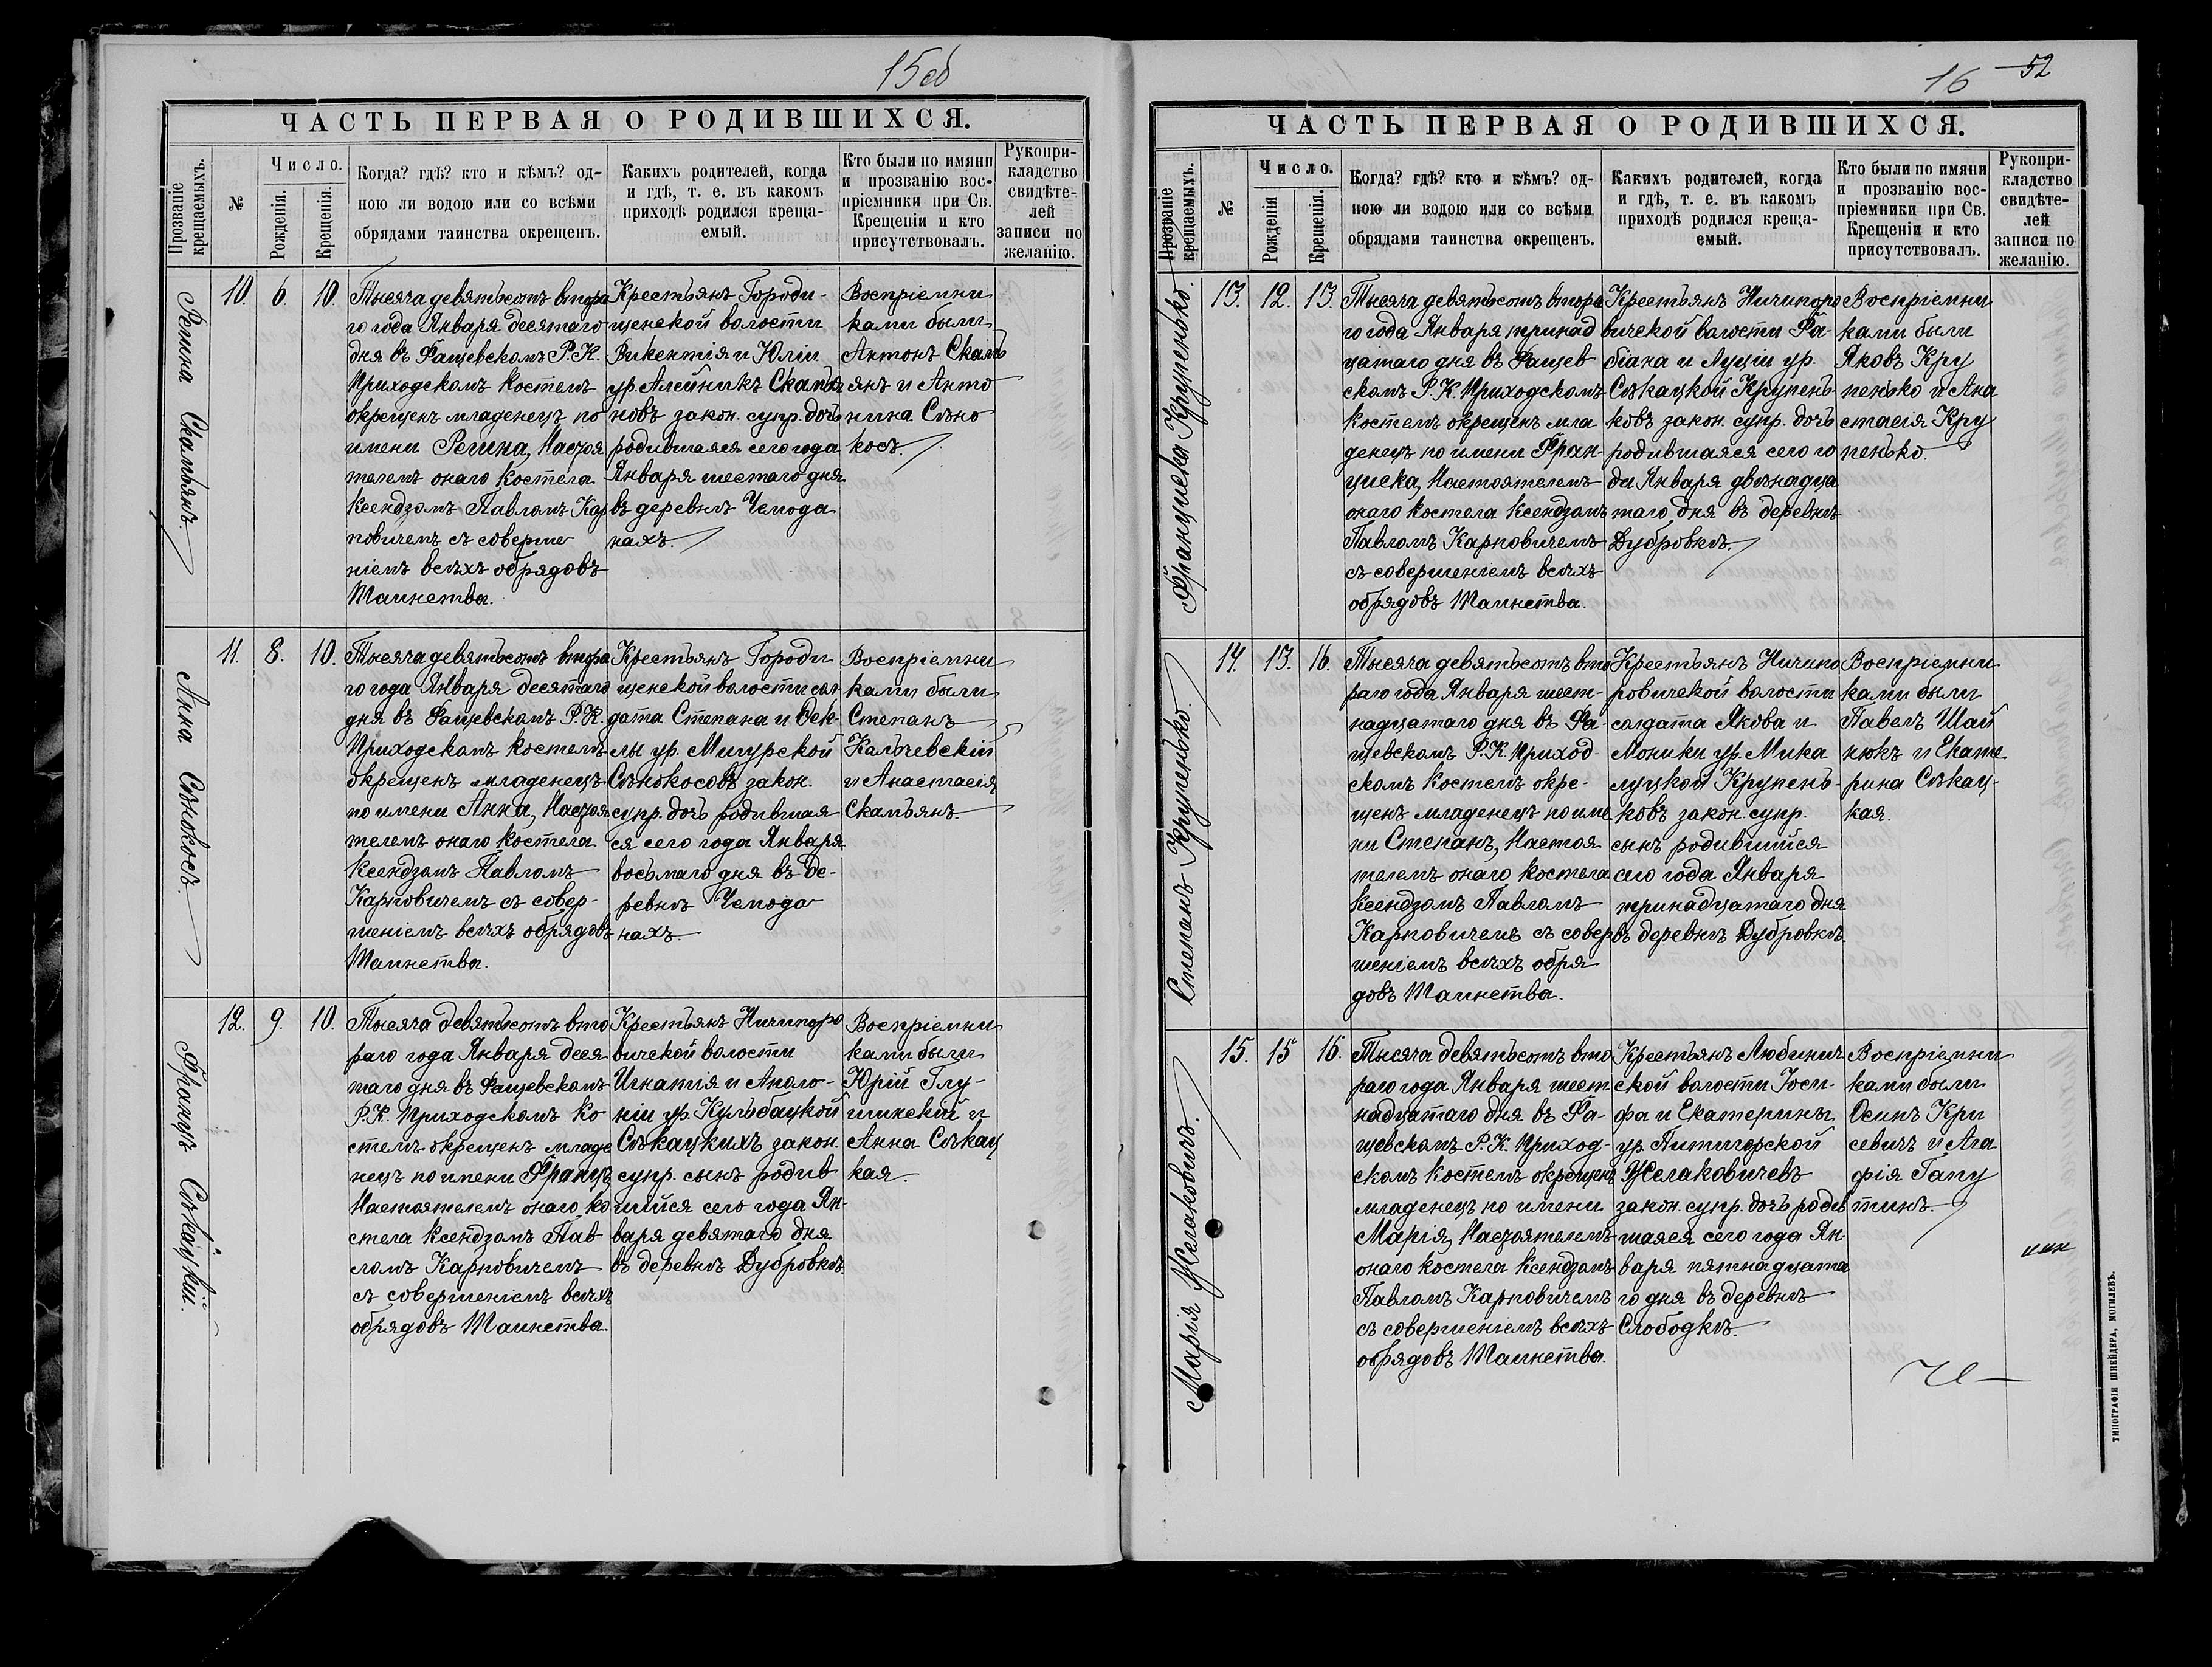 15об
ЧАСТЬ ПЕРВАЯ О РОДИВШИХСЯ.
Прозваніе крещаемыхъ.
№
Число.
Рожденія.
Крещенія.
Когда? гдѣ? кто и кѣмъ? од-
ною ли водою или со всѣми
обрядами таинства окрещенъ.
Какихъ родителей, когда
и гдѣ, т. е. въ какомъ
приходѣ родился креща-
емый.
Кто были по имяни
и прозванію вос-
пріемники при Св.
Крещеніи и кто
присутствовалъ.
Рукопри-
кладство
свидѣте-
лей
записи по
желанію.
Регина Скамъянъ.
10.
6.
10.
Тысяча девятьсотъ второ
го года Января десятаго
дня въ Фащевскомъ Р.К.
Приходскомъ костелѣ
окрещенъ младенецъ по
имени Регина, Настоя
телемъ онаго костела
Ксендзомъ Павломъ Кар
повичемъ съ соверше
ніемъ всѣхъ обрядовъ
Таинства.
Крестьянъ Городи-
щенской волости
Викентія и Юліи
ур. Алейникъ Скамъя
новъ закон. супр. дочь
родившаяся сего года
Января шестаго дня
въ деревнѣ Чемода
нахъ.
Воспріемни
ками были
Антонъ Скамъ
янъ и Анто
нина Сѣно
косъ.
Анна Сѣнокосъ.
11.
8.
10.
Тысяча девятьсотъ второ
го года Января десятаго
дня въ Фащевскомъ Р.К.
Приходскомъ костелѣ
окрещенъ младенецъ
по имени Анна, Настоя
телемъ онаго костела
Ксендзомъ Павломъ
Карповичемъ съ совер-
шеніемъ всѣхъ обрядовъ
Таинства.
Крестьянъ Городи
щенской волости сол
дата Степана и Фек-
лы ур. Мигурской
Сѣнокосовъ закон.
супр. дочь родившая
ся сего года Января
восьмаго дня въ де-
ревнѣ Чемода
нахъ.
Воспріемни
ками были
Степанъ
Кальчевскій
и Анастасія
Скамъянъ.
Францъ Сѣкацкій.
12.
9.
10.
Тысяча девятьсотъ вто
раго года Января деся
таго дня въ Фащевскомъ
Р.К. Приходскомъ ко
стелѣ окрещенъ младе
нецъ по имени Францъ,
Настоятелемъ онаго ко
стела Ксендзомъ Пав
ломъ Карповичемъ
съ совершеніемъ всѣхъ
обрядовъ Таинства.
Крестьянъ Ничипоро
вичской волости
Игнатія и Аполо-
ніи ур. Кульбацкой
Сѣкацкихъ закон.
супр. сынъ родив
шійся сего года Ян-
варя девятаго дня
въ деревнѣ Дубровкѣ.
Воспріемни
ками были
Юрій Глу-
шинскій и
Анна Сѣкац
кая.
16
52
ЧАСТЬ ПЕРВАЯ О РОДИВШИХСЯ.
Прозваніе крещаемыхъ.
№
Число.
Рожденія
Крещенія.
Когда? гдѣ? кто и кѣмъ? од-
ною ли водою или со всѣми
обрядами таинства окрещенъ.
Какихъ родителей, когда
и гдѣ, т. е. въ какомъ
приходѣ родился креща-
емый.
Кто были по имяни
и прозванію вос-
пріемники при Св.
Крещеніи и кто
присутствовалъ.
Рукопри-
кладство
свидѣте-
лей
записи по
желанію.
Францишка Крупенько.
13.
12.
13.
Тысяча девятьсотъ второ
го года Января тринад
цатаго дня въ Фащев
скомъ Р.К. Приходскомъ
костелѣ окрещенъ мла
денецъ по имени Фран-
циска, Настоятелемъ
онаго костела Ксендзомъ
Павломъ Карповичемъ
съ совершеніемъ всѣхъ
обрядовъ Таинства.
Крестьянъ Ничипоро
вичской волости Фа-
біана и Луціи ур.
Сѣкацкой Крупень
ковъ закон. супр. дочь
родившаяся сего го
да Января двѣнадца
таго дня въ деревнѣ
Дубровкѣ.
Воспріемни
ками были
Яковъ Кру
пенько и Ана
стасія Кру
пенько.
Степанъ Крупенько.
14.
13.
16.
Тысяча девятьсотъ вто
раго года Января шест-
надцатаго дня въ Фа-
щевскомъ Р.К. Приход-
скомъ костелѣ окре-
щенъ младенецъ по име
ни Степанъ, Настоя
телемъ онаго костела
Ксендзомъ Павломъ
Карповичемъ съ совер
шеніемъ всѣхъ обря
довъ Таинства.
Крестьянъ Ничипо
ровичской волости
солдата Якова и
Моники ур. Мика
луцкой Крупень-
ковъ закон. супр.
сынъ родившійся
сего года Января
тринадцатаго дня
въ деревнѣ Дубровкѣ.
Воспріемни
ками были
Павелъ Шай
нюкъ и Екате
рина Сѣкац-
кая.
Марія Желаковичъ.
15.
15
16.
Тысяча девятьсотъ вто
раго года Января шест
надцатаго дня въ Фа-
щевскомъ Р.К. Приход-
скомъ костелѣ окрещенъ
младенецъ по имени
Марія, Настоятелемъ
онаго костела Ксендзомъ
Павломъ Карповичемъ
съ совершеніемъ всѣхъ
обрядовъ Таинства.
Крестьянъ Любинич
ской волости Іоси-
фа и Екатерины
ур. Пятигорской
Желаковичевъ
закон. супр. дочь родив
шаяся сего года Ян-
варя пятнадцата
го дня въ деревнѣ
Слободкѣ.
Воспріемни
ками были
Осипъ Кри
севичъ и Ага
фія Гапу
тинъ.
ТИПОГРАФІЯ ШНЕЙДЕРА, МОГИЛЕВЪ.